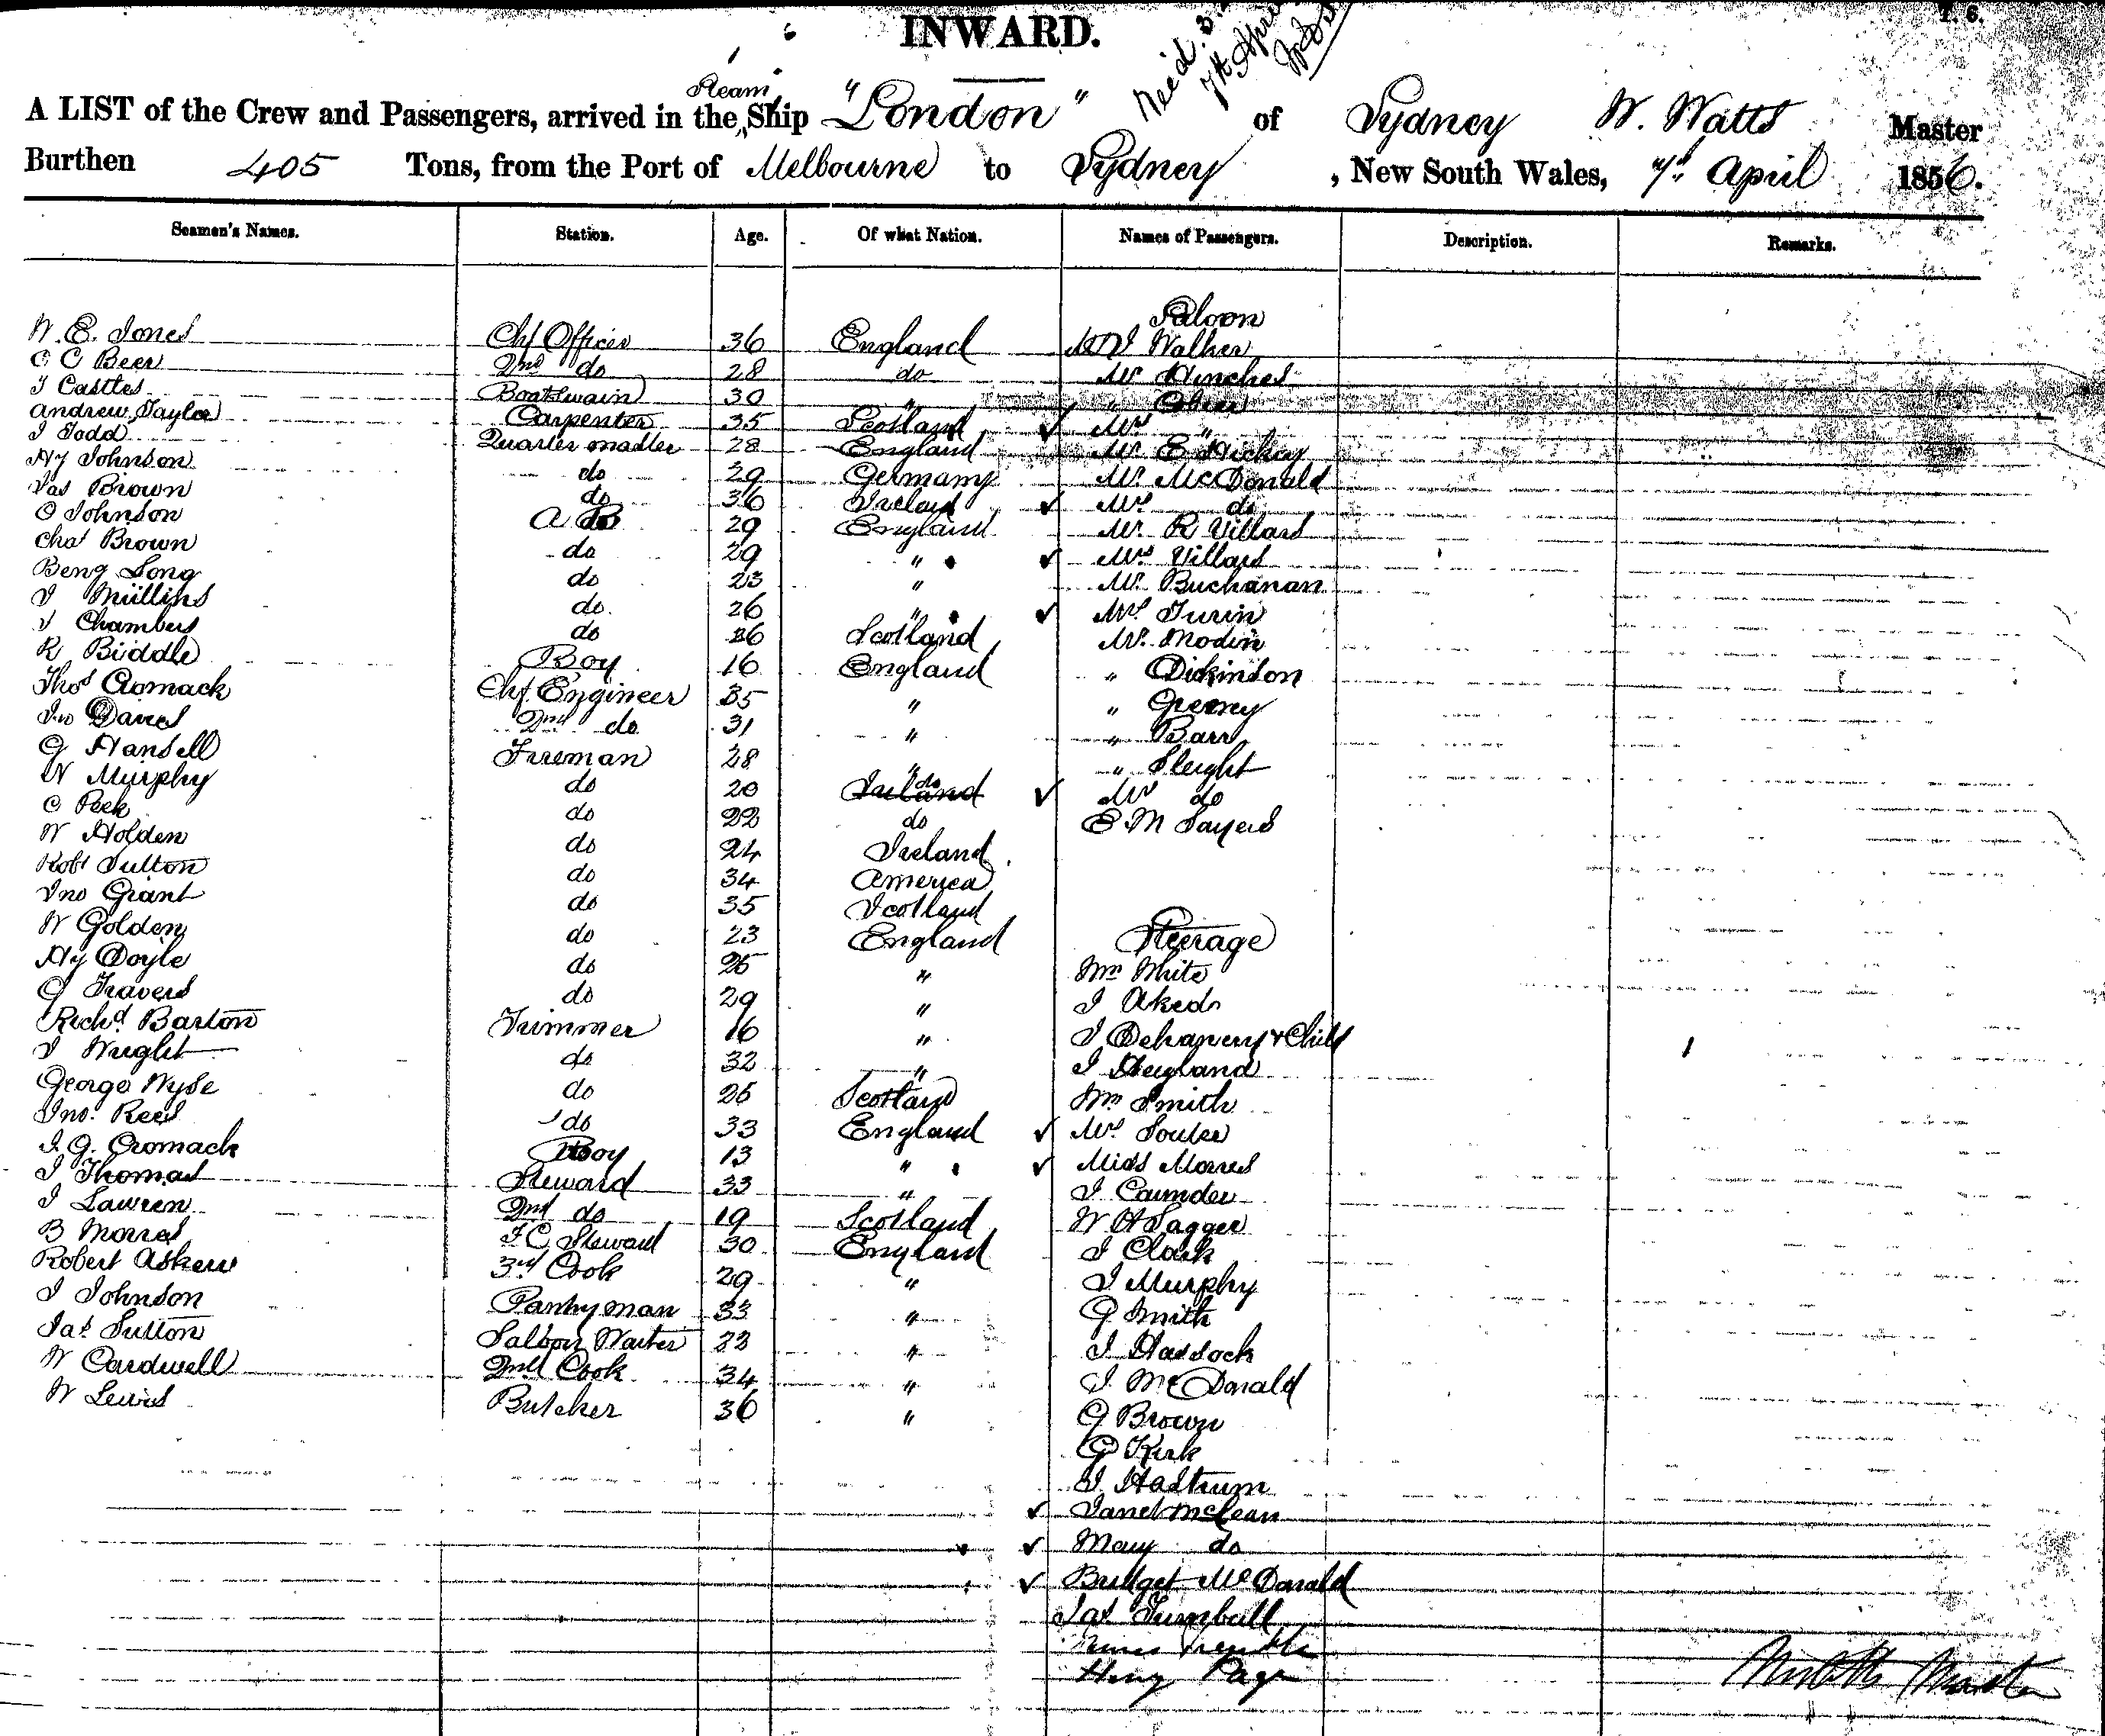 INWARD.
T. 6.
Steam
A LIST of the Crew and Passengers, arrived in the Ship "London" of Sydney W. Watts Master
Burthen 405 Tons, from the Port of Melbourne to Sydney, New South Wales, 7th April 1856.
Seamen's Names. Station. Age. Of what Nation. Names of Passengers. Description. Remarks.
Saloon
W. E. Jones Chf Officer 36 England Walker
C C Beer 2nd do 28 do Mr Hinches
J Castles Boatswain 30 "
Andrew Taylor Carpenter 35 Scotland ✓ Mrs "
J Todd Quarter master 28 England Mr E Hickey
Hy Johnson do 29 Germany Mr McDonald
Jas Brown do 36 Ireland ✓ Mrs do
O Johnson A B 29 England Mr R Villard
Chas Brown do 29 " ✓ Mrs Villard
Benj Long do 23 " Mr Buchanan
J Mullins do 26 " ✓ Mrs Turin
J Chambers do 26 Scotland Mr Modin
R Biddle Boy 16 England " Dickinson
Thos Cromack Chf Engineer 35 "
Jno Davies 2nd do 31 " " Barr
G Hansell Fireman 28 " " Sleight
W Murphy do 20 Ireland do ✓ Mrs do
C Peek do 22 do E M Sayers
W Holden do 24 Ireland
Robt Sutton do 34 America
Jno Grant do 35 Scotland
W Golden do 23 England Steerage
Hy Doyle do 25 " Wm White
G Travers do 29 " J Aked
Richd Barton Trimmer 16 " J & Child
J Wright do 32 " J
George Wyse do 26 Scotland Wm Smith
Jno. Reed do 33 England ✓ Mrs
J. G. Cromack Boy 13 " ✓ Miss Morres
J Thomas Steward 33 " J
J Lawren 2nd do 19 Scotland W H Sagger
B Morres F C Steward 30 England J Clark
Robert Askew 3rd Cook 29 " J Murphy
J Johnson Pantryman 33 " G Smith
Jas Sutton Saloon Waiter 23 " J Hassock
W Cardwell 2nd Cook 34 " J. McDonald
W Lewis Butcher 36 " G Brown
G Kirk
J Hastrum
✓ Janet McLean
✓ Mary do
✓ Bridget McDonald
Jas Turnbull
Henry Page
W Watts Master